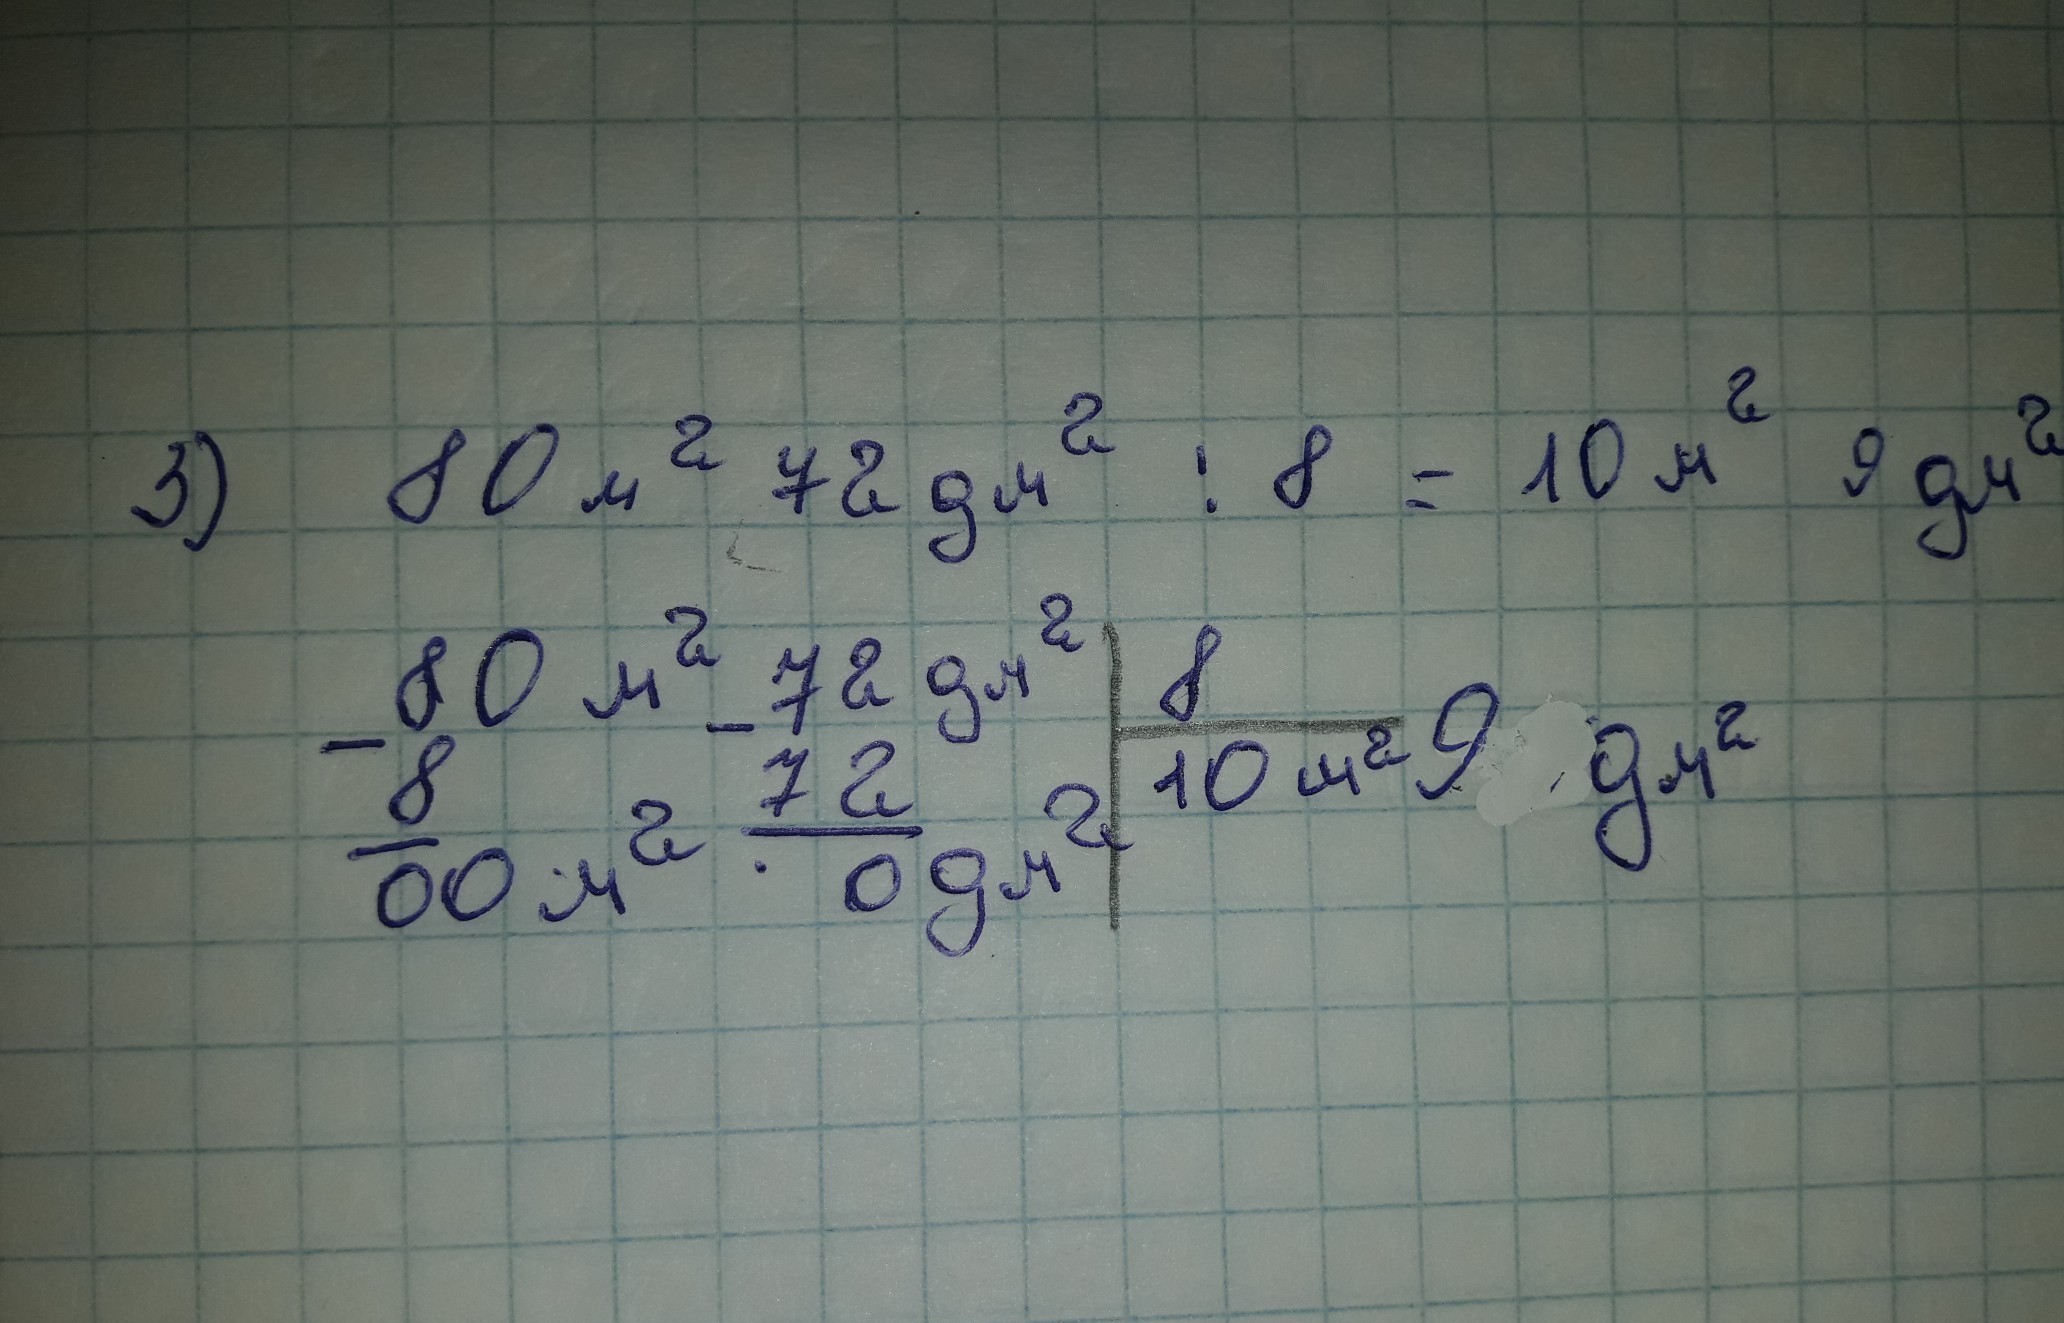 3) 80 м² 72 дм² : 8 = 10 м² 9 дм²
- 80 м² - 72 дм² | 8
8 72 10 м² 9 дм²
00 м² 0 дм²